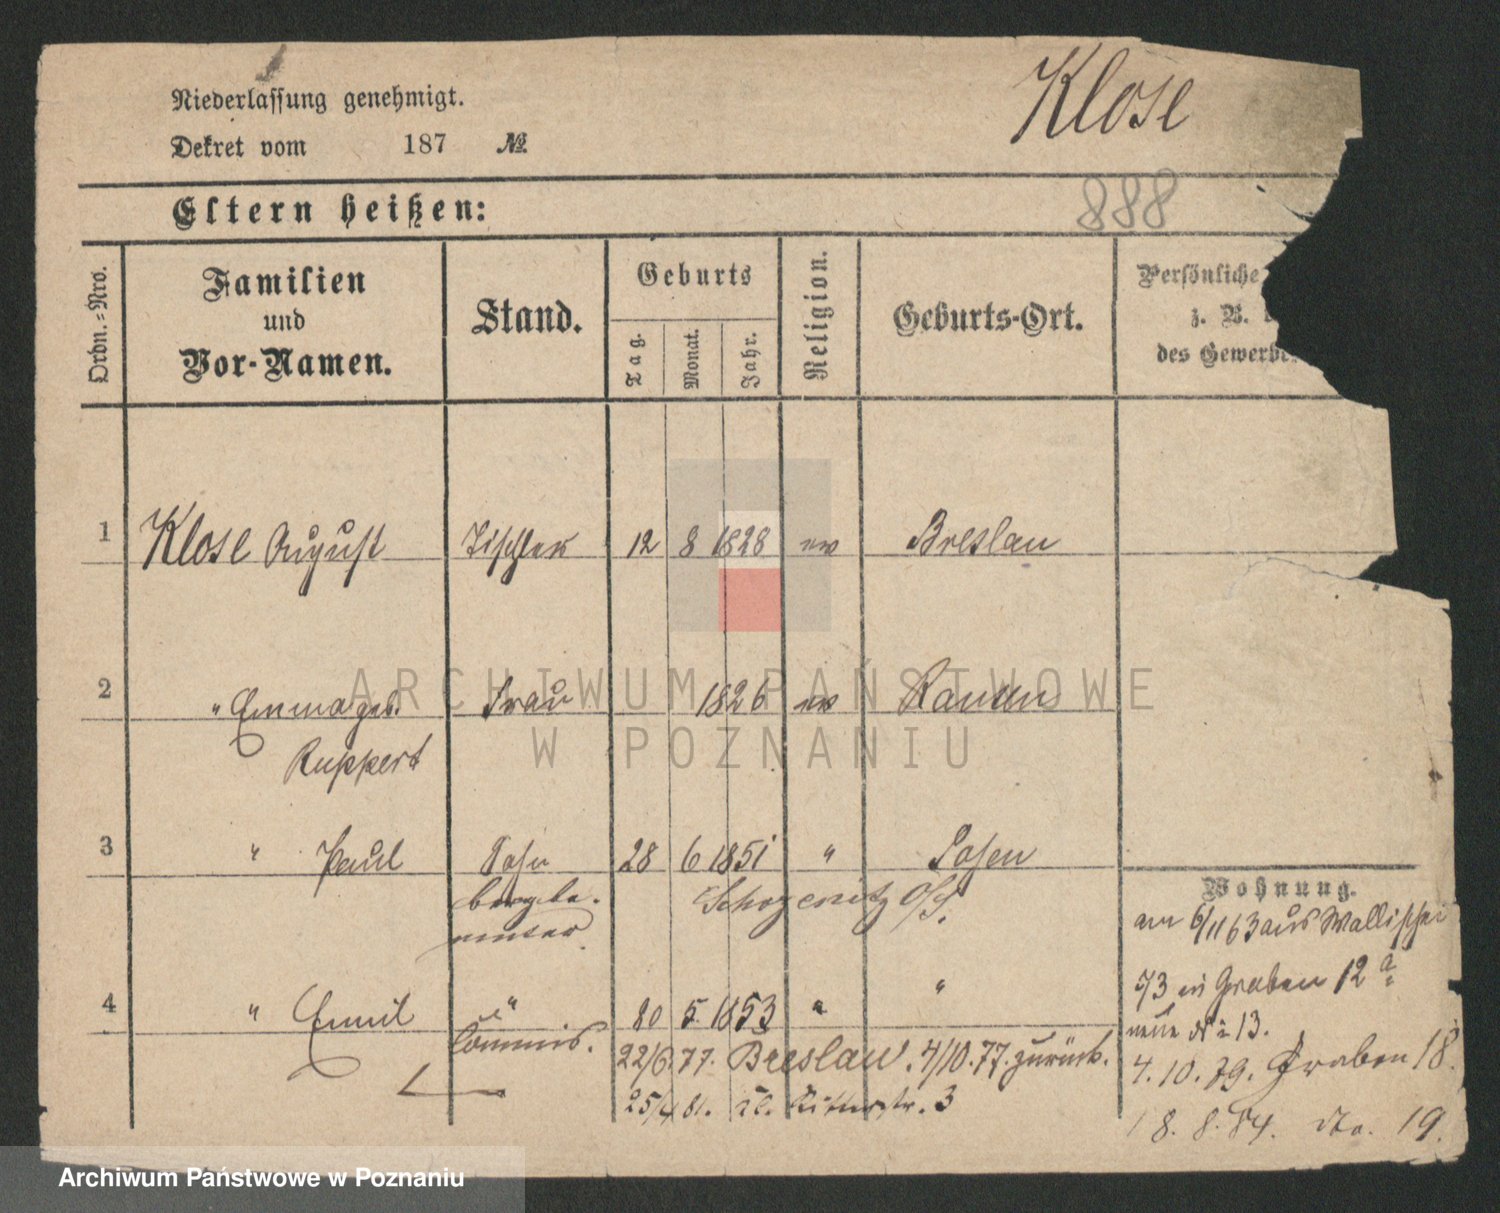 Niederlassung genehmigt.
Klose
Dekret vom 187 №
888
Eltern heißen:
Ordn.-Nro.
Familien
und
Vor-Namen.
Stand.
Geburts
Tag.
Monat.
Jahr.
Religion.
Geburts-Ort.
Persönliche
z. B.
des Gewerbe
1 Klose August Tischler 12 8 1828 ev Breslau
2 " Emma geb. Frau 1826 ev
Ruppert
3 " Paul Sohn 28 6 1851 " Posen
Wohnung.
am 6/11 63 aus Wallischei
73 in Graben 12 a
4 " Emil " 5 1853 " "
Commis.
neue № 13.
22/6.77. Breslau. 4/10.77. zurück.
4.10.79. Graben 18.
25/4 81. Ritterstr. 3
18.8.84. dto. 19.
ARCHIWUM PAŃSTWOWE
W POZNANIU
Archiwum Państwowe w Poznaniu